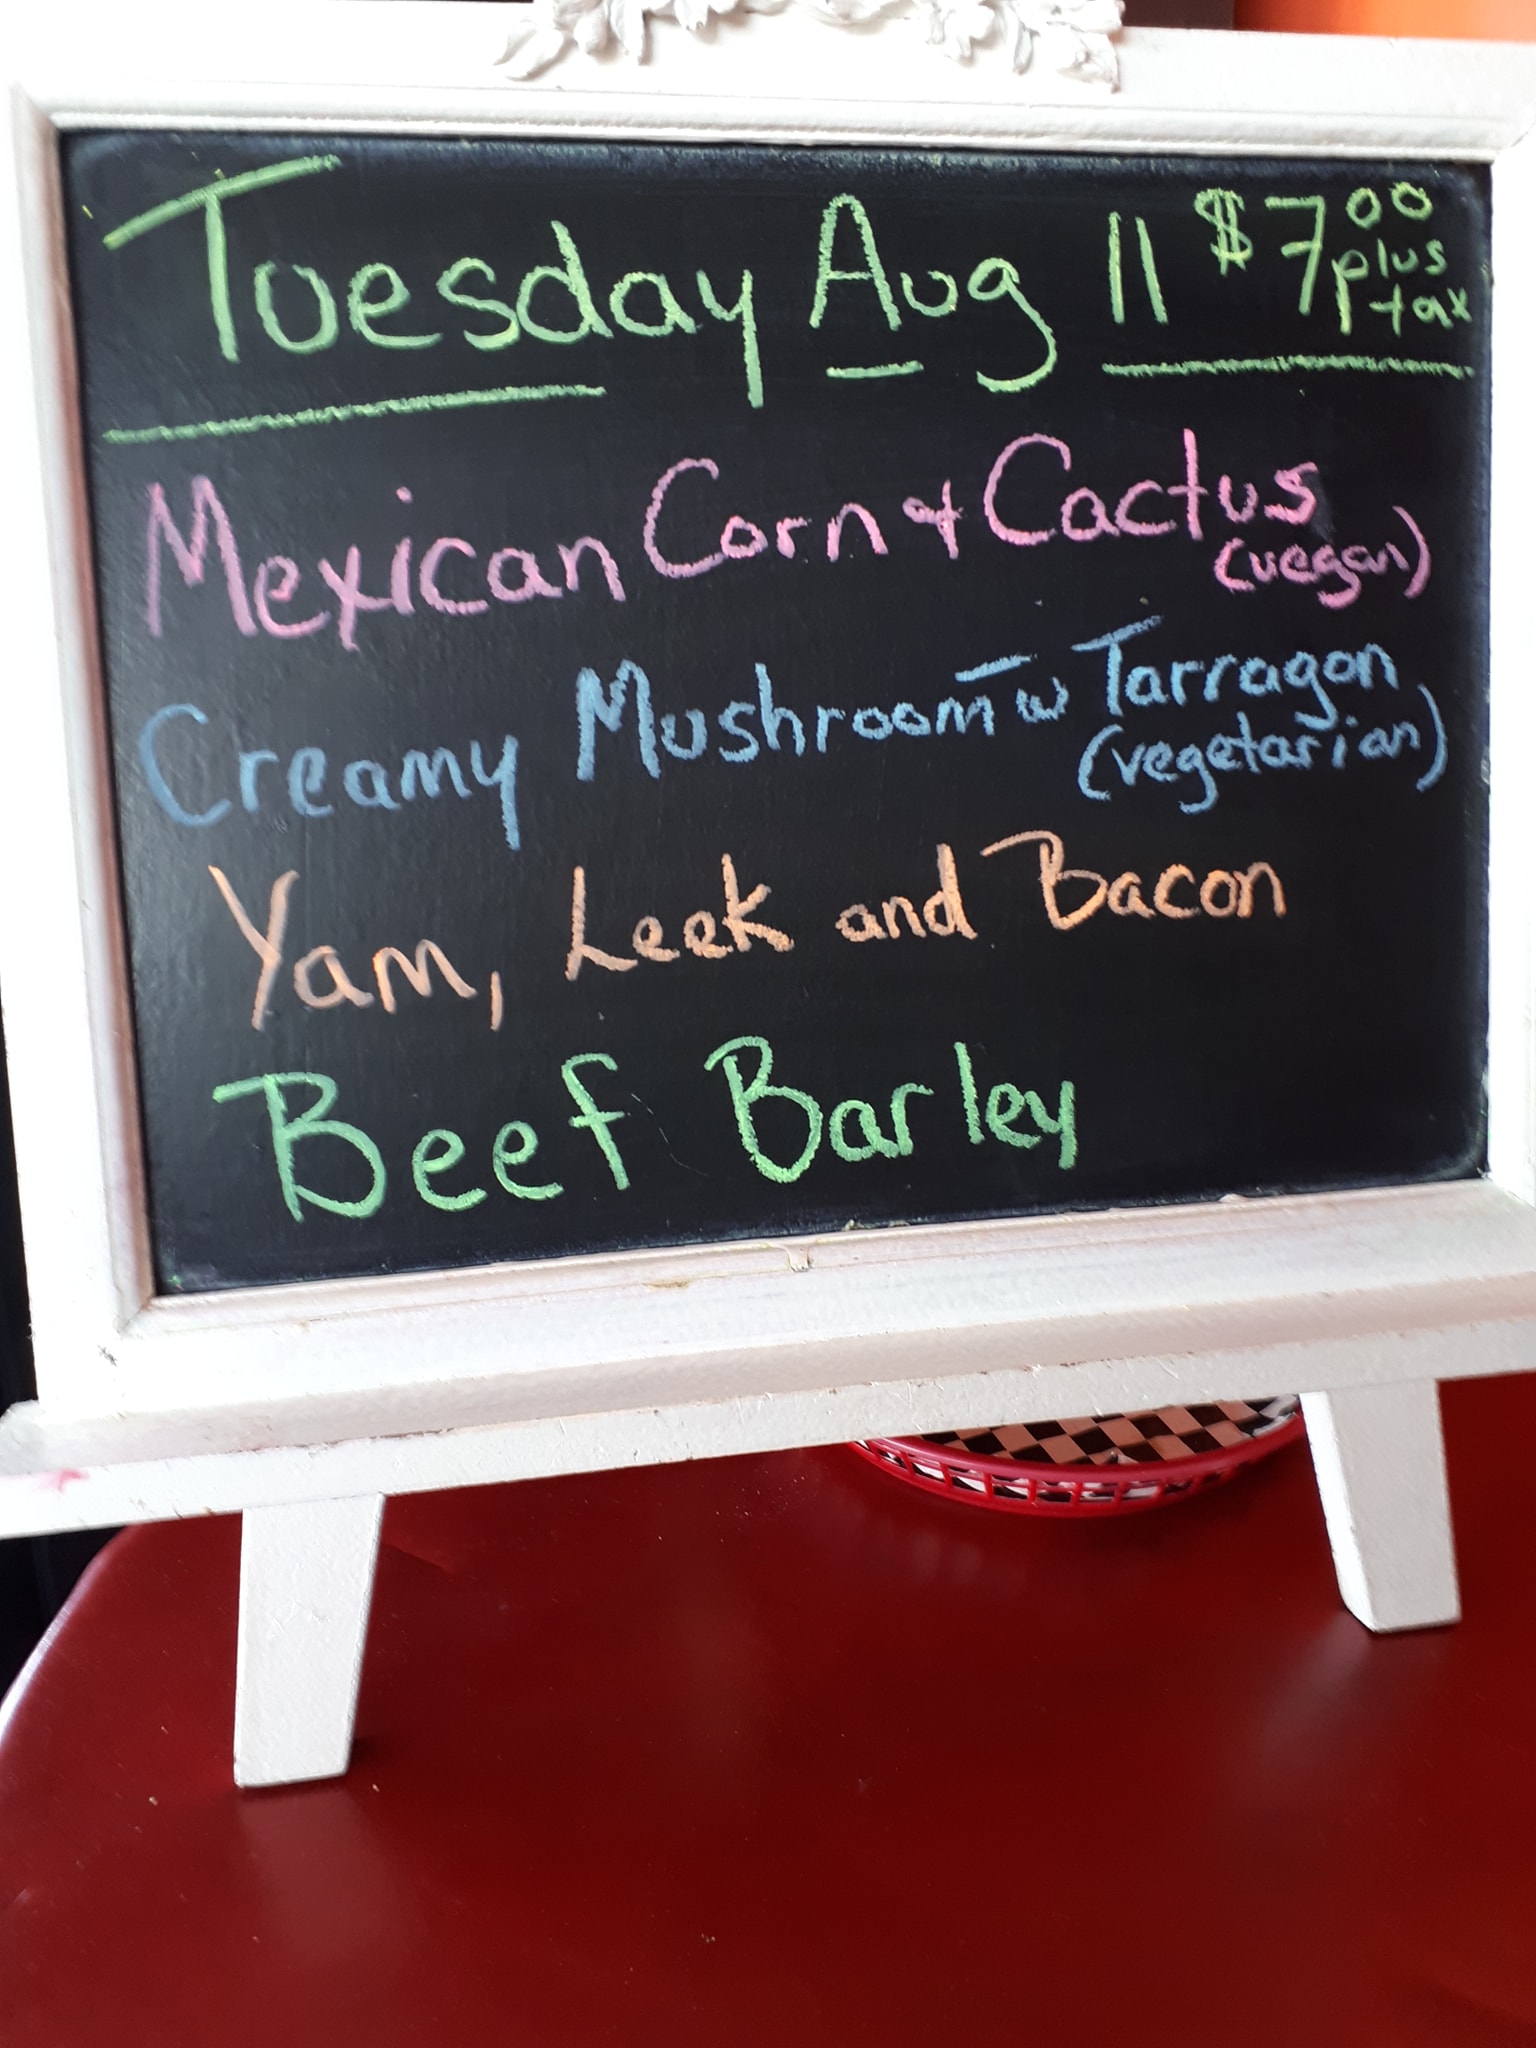 Tuesday Aug 11 $7.00 plus tax
Mexican Corn & Cactus
(vegan)
Creamy Mushroom w Tarragon
(vegetarian)
Yam, Leek and Bacon
Beef Barley